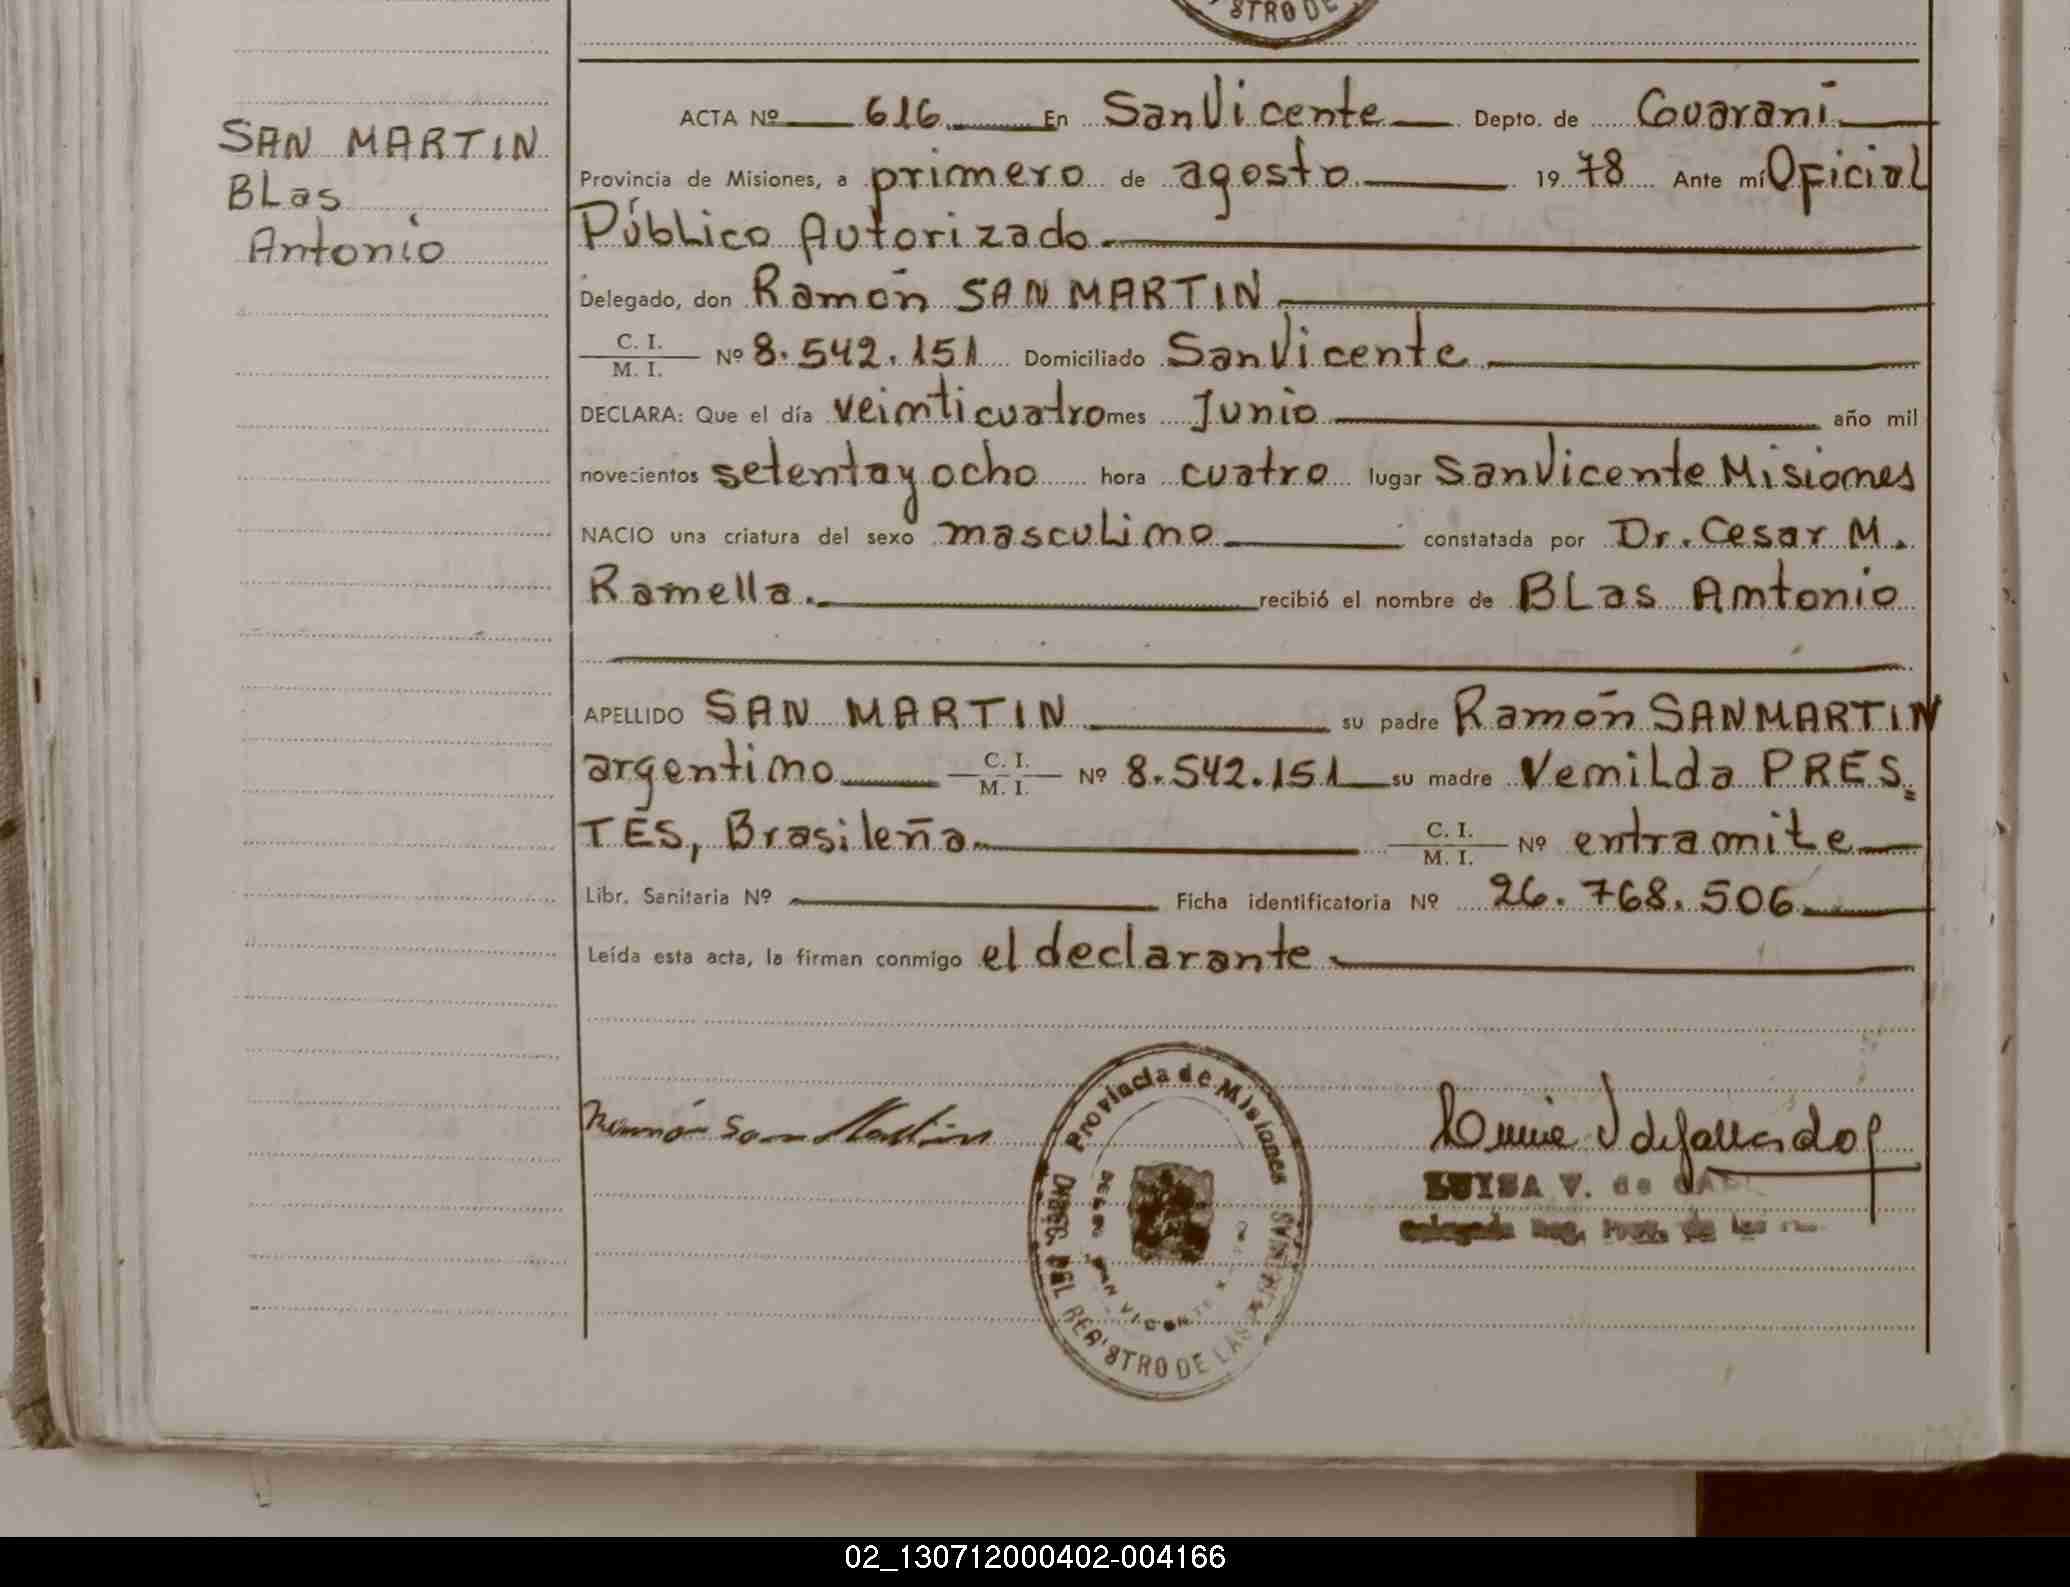 STRO DE
SAN MARTIN
BLas
Antonio
ACTA Nº 616 En San Vicente Depto. de Guaraní
Provincia de Misiones, a primero de agosto 19 78 Ante mí Oficial
Público Autorizado
Delegado, don Ramón SAN MARTIN
C. I.
M. I. Nº 8.542.151 Domiciliado San Vicente
DECLARA: Que el día veinticuatro mes Junio año mil
novecientos setenta y ocho hora cuatro lugar San Vicente Misiones
NACIO una criatura del sexo masculino constatada por Dr. Cesar M.
Ramella. recibió el nombre de BLas Antonio
APELLIDO SAN MARTIN su padre Ramón SAN MARTIN
argentino C. I.
M. I. Nº 8.542.151 su madre Venilda PRES=
TES, Brasileña C. I.
M. I. Nº en tramite
Libr. Sanitaria Nº Ficha identificatoria Nº 26.768.506
Leída esta acta, la firman conmigo el declarante
Ramón San Martin
Provincia de Misiones
DIREC. DEL REGISTRO DE LAS PERSONAS
SAN VICENTE
LUISA V. de
Delegada Reg. Prov. de las
02_130712000402-004166